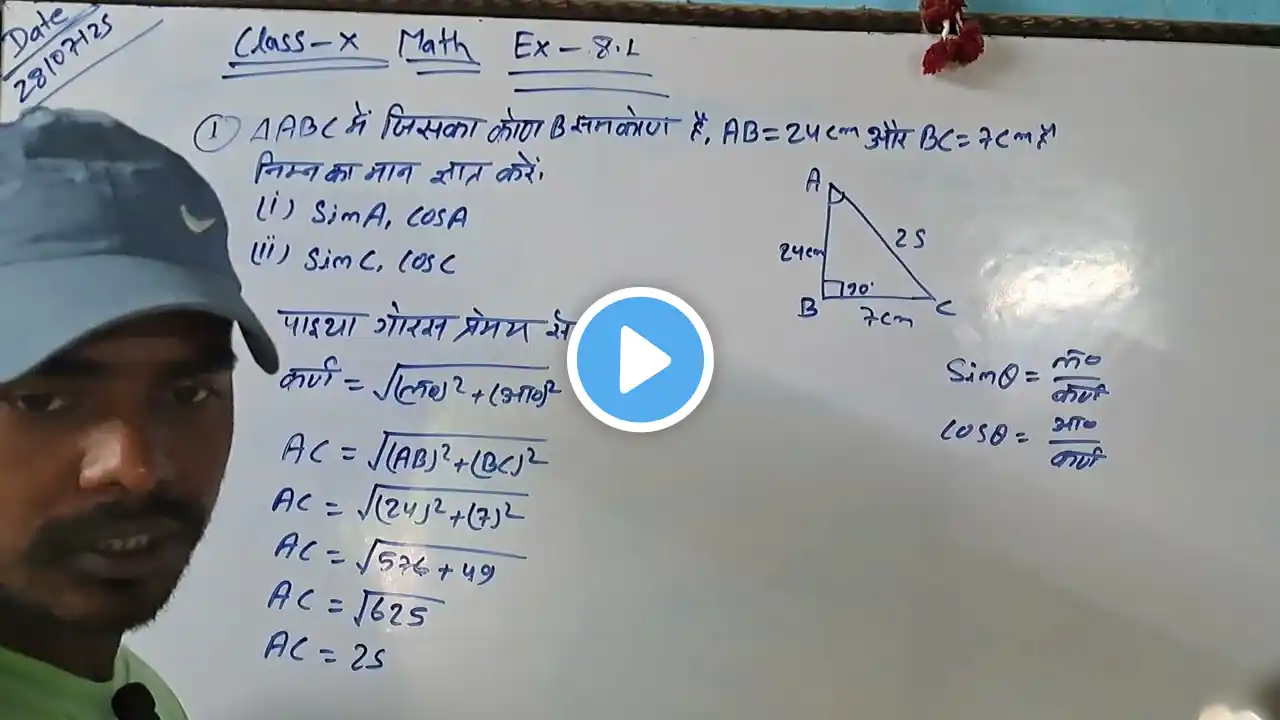 Date
28/07/25
Class-X Math Ex-8.1
① ΔABC में जिसका कोण B समकोण है, AB=24cm और BC=7cm है
निम्न का मान ज्ञात करें।
(i) SinA, COSA
(ii) SinC, COSC
A
24cm
25
B
90°
C
7cm
पाइथा गोरस प्रेमय से
कर्ण = √(लं०)²+(आ०)²
AC = √(AB)²+(BC)²
AC = √(24)²+(7)²
AC = √576+49
AC = √625
AC = 25
Sinθ = लं०/कर्ण
COSθ = आ०/कर्ण